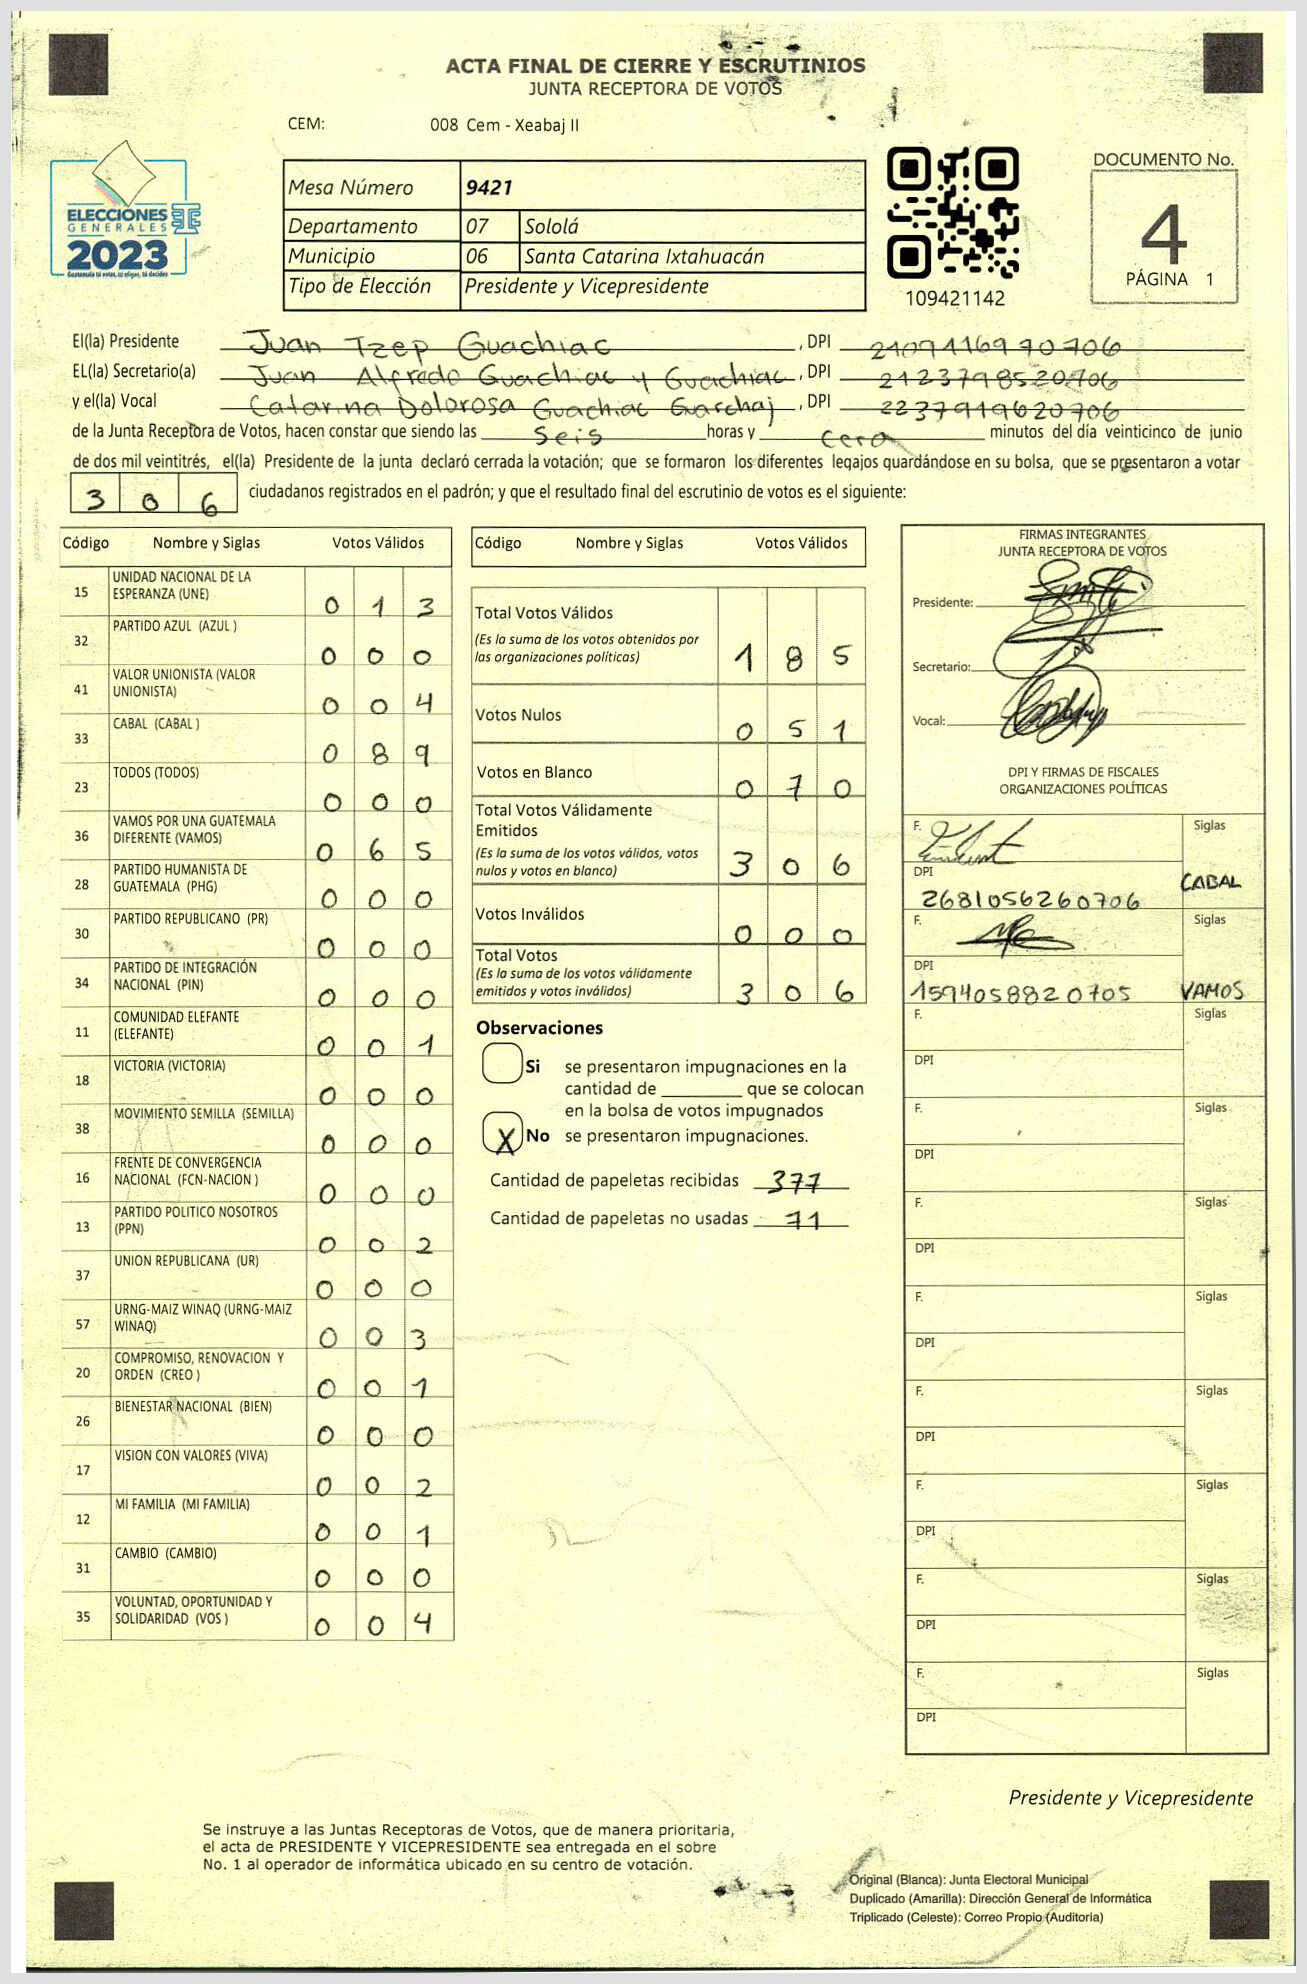 ACTA FINAL DE CIERRE Y ESCRUTINIOS
JUNTA RECEPTORA DE VOTOS
CEM: 008 Cem - Xeabaj II
ELECCIONES
GENERALES
2023
Guatemala tú votas, tú eliges, tú decides
Mesa Número 9421
Departamento 07 Sololá
Municipio 06 Santa Catarina Ixtahuacán
Tipo de Elección Presidente y Vicepresidente
109421142
DOCUMENTO No.
4
PÁGINA 1
El(la) Presidente Juan Tzep Guachiac, DPI 2109116970706
EL(la) Secretario(a) Juan Alfredo Guachiac y Guachiac, DPI 2123798520706
y el(la) Vocal Catarina Dolorosa Guachiac Guarchaj, DPI 2237919620706
de la Junta Receptora de Votos, hacen constar que siendo las Seis horas y cero minutos del día veinticinco de junio
de dos mil veintitrés, el(la) Presidente de la junta declaró cerrada la votación; que se formaron los diferentes legajos guardándose en su bolsa, que se presentaron a votar
3 0 6 ciudadanos registrados en el padrón; y que el resultado final del escrutinio de votos es el siguiente:
Código Nombre y Siglas Votos Válidos
15 UNIDAD NACIONAL DE LA
ESPERANZA (UNE) 0 1 3
32 PARTIDO AZUL (AZUL ) 0 0 0
41 VALOR UNIONISTA (VALOR
UNIONISTA) 0 0 4
33 CABAL (CABAL ) 0 8 9
23 TODOS (TODOS) 0 0 0
36 VAMOS POR UNA GUATEMALA
DIFERENTE (VAMOS) 0 6 5
28 PARTIDO HUMANISTA DE
GUATEMALA (PHG) 0 0 0
30 PARTIDO REPUBLICANO (PR) 0 0 0
34 PARTIDO DE INTEGRACIÓN
NACIONAL (PIN) 0 0 0
11 COMUNIDAD ELEFANTE
(ELEFANTE) 0 0 1
18 VICTORIA (VICTORIA) 0 0 0
38 MOVIMIENTO SEMILLA (SEMILLA) 0 0 0
16 FRENTE DE CONVERGENCIA
NACIONAL (FCN-NACION ) 0 0 0
13 PARTIDO POLITICO NOSOTROS
(PPN) 0 0 2
37 UNION REPUBLICANA (UR) 0 0 0
57 URNG-MAIZ WINAQ (URNG-MAIZ
WINAQ) 0 0 3
20 COMPROMISO, RENOVACION Y
ORDEN (CREO ) 0 0 1
26 BIENESTAR NACIONAL (BIEN) 0 0 0
17 VISION CON VALORES (VIVA) 0 0 2
12 MI FAMILIA (MI FAMILIA) 0 0 1
31 CAMBIO (CAMBIO) 0 0 0
35 VOLUNTAD, OPORTUNIDAD Y
SOLIDARIDAD (VOS ) 0 0 4
Código Nombre y Siglas Votos Válidos
Total Votos Válidos
(Es la suma de los votos obtenidos por
las organizaciones políticas) 1 8 5
Votos Nulos 0 5 1
Votos en Blanco 0 7 0
Total Votos Válidamente
Emitidos
(Es la suma de los votos válidos, votos
nulos y votos en blanco) 3 0 6
Votos Inválidos 0 0 0
Total Votos
(Es la suma de los votos válidamente
emitidos y votos inválidos) 3 0 6
Observaciones
Si se presentaron impugnaciones en la
cantidad de ________ que se colocan
en la bolsa de votos impugnados
X No se presentaron impugnaciones.
Cantidad de papeletas recibidas 377
Cantidad de papeletas no usadas 71
FIRMAS INTEGRANTES
JUNTA RECEPTORA DE VOTOS
Presidente:
Secretario:
Vocal:
DPI Y FIRMAS DE FISCALES
ORGANIZACIONES POLÍTICAS
F. Siglas
DPI
2681056260706 CABAL
F. Siglas
DPI
1594058820705 VAMOS
F. Siglas
DPI
F. Siglas
DPI
F. Siglas
DPI
F. Siglas
DPI
F. Siglas
DPI
F. Siglas
DPI
F. Siglas
DPI
F. Siglas
DPI
Presidente y Vicepresidente
Se instruye a las Juntas Receptoras de Votos, que de manera prioritaria,
el acta de PRESIDENTE Y VICEPRESIDENTE sea entregada en el sobre
No. 1 al operador de informática ubicado en su centro de votación.
Original (Blanca): Junta Electoral Municipal
Duplicado (Amarilla): Dirección General de Informática
Triplicado (Celeste): Correo Propio (Auditoria)